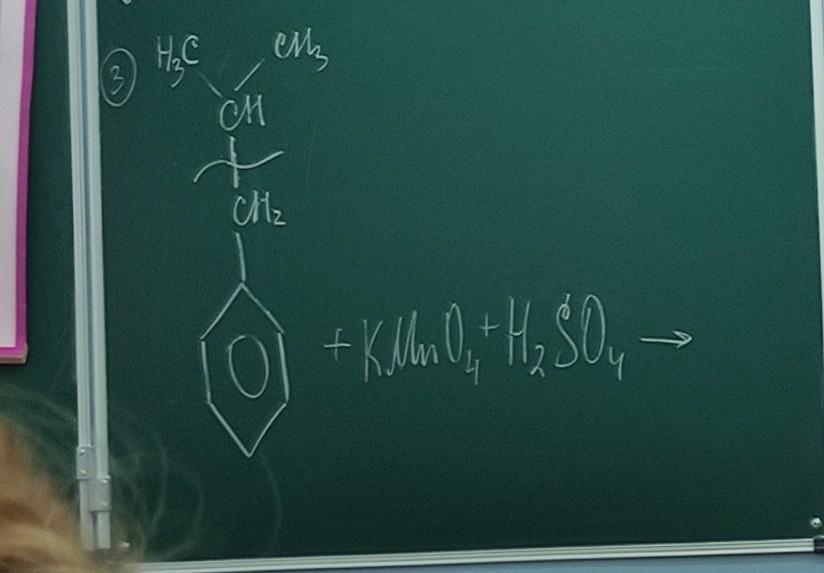 3 H₃C CH₃
CH
CH₂
+ KMnO₄ + H₂SO₄ →